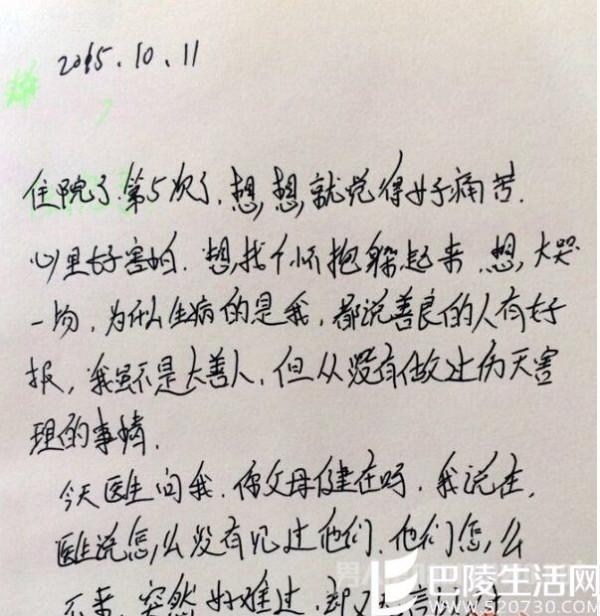 2015.10.11
住院了.第5次了.想,想,就觉得好痛苦.
心里好害怕.想找个怀抱躲起来.想,大哭
一场,为什么生病的是我,都说善良的人有好
报,我虽不是大善人,但从没有做过伤天害
理的事情.
今天医生问我.你父母健在吗.我说在,
医生说怎么没有见过他们.他们怎么
不来,突然好难过.却又
巴陵生活网
www.520730.com